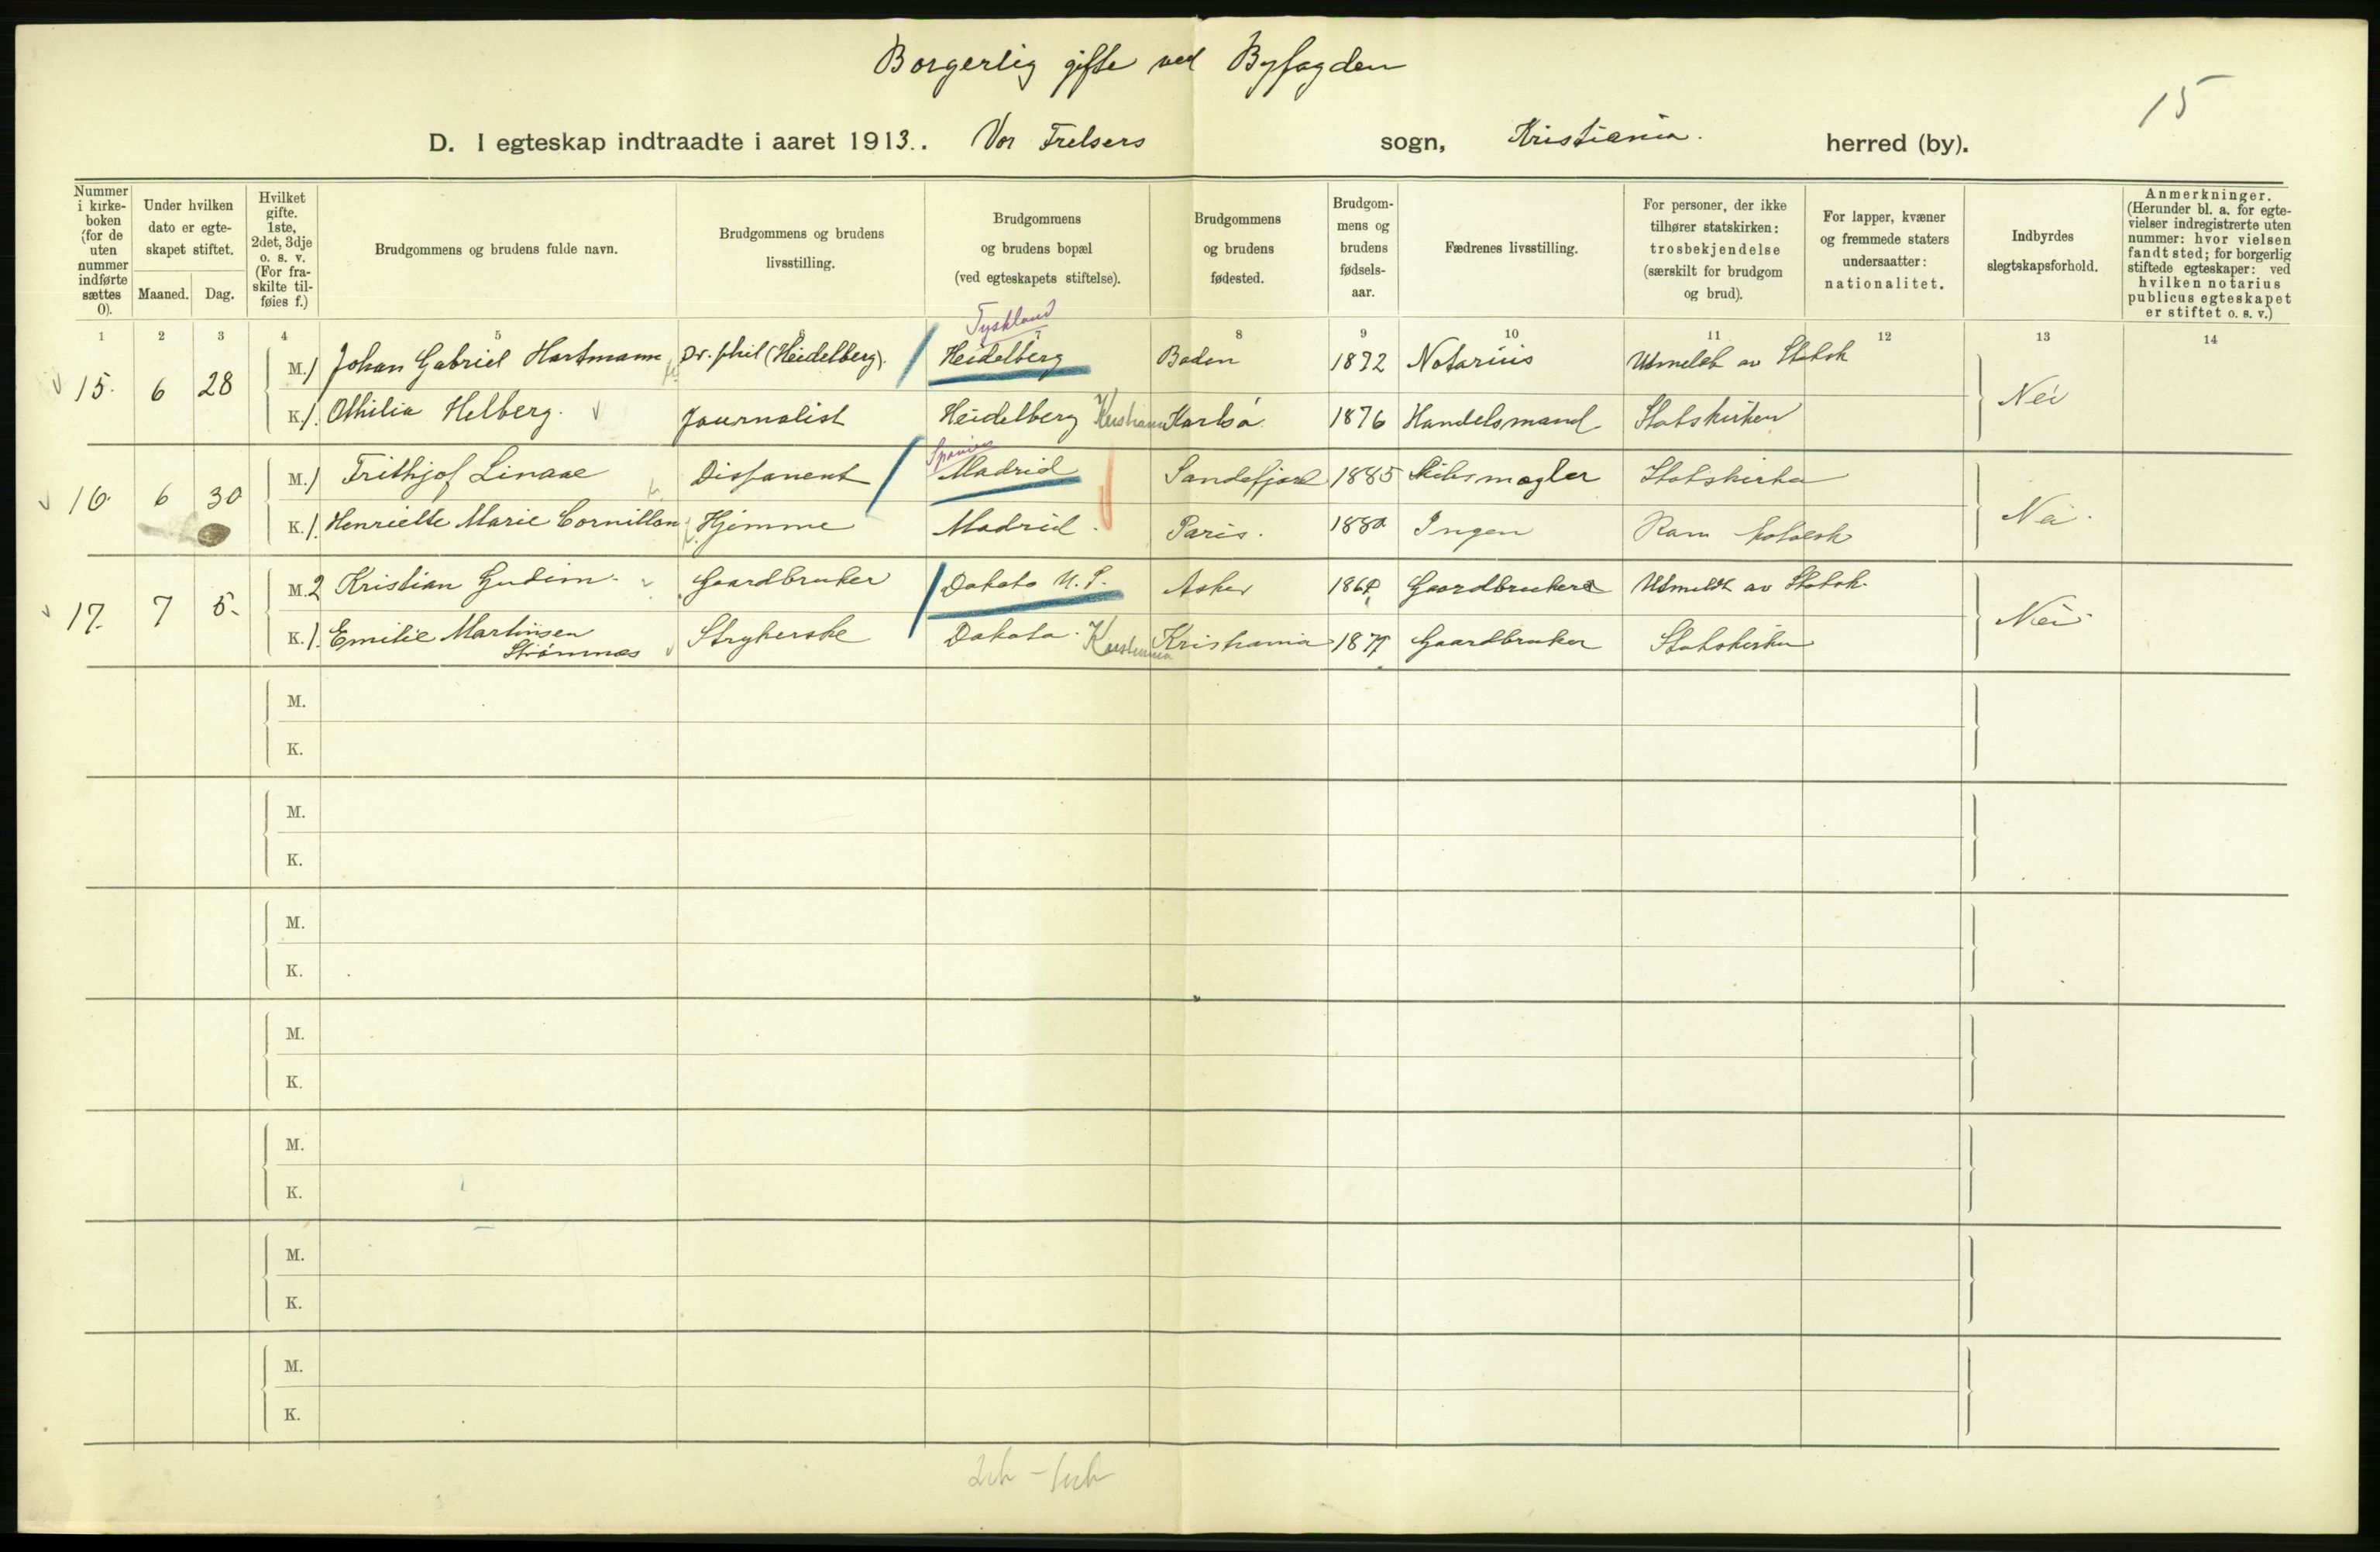 Borgerlig gifte ved Byfogden
15
D. I egteskap indtraadte i aaret 1913. Vor Frelsers sogn, Kristiania. herred (by).
Nummer i kirke-boken (for de uten nummer indførte sættes 0).
Under hvilken dato er egte-skapet stiftet.
Maaned. Dag.
Hvilket gifte. 1ste, 2det, 3dje o. s. v. (For fra-skilte til-føies f.)
Brudgommens og brudens fulde navn.
Brudgommens og brudens livsstilling.
Brudgommens og brudens bopæl (ved egteskapets stiftelse).
Brudgommens og brudens fødested.
Brudgom-mens og brudens fødsels-aar.
Fædrenes livsstilling.
For personer, der ikke tilhører statskirken: trosbekjendelse (særskilt for brudgom og brud).
For lapper, kvæner og fremmede staters undersaatter: nationalitet.
Indbyrdes slegtskapsforhold.
Anmerkninger. (Herunder bl. a. for egte-vielser indregistrerte uten nummer: hvor vielsen fandt sted; for borgerlig stiftede egteskaper: ved hvilken notarius publicus egteskapet er stiftet o. s. v.)
1 2 3 4 5 6 7 8 9 10 11 12 13 14
Tyskland
15. 6 28 M. 1 Johan Gabriel Hartmann Dr. phil (Heidelberg). Heidelberg Baden Notarius Utmeldt av Statsk Nei
K. 1. Othilia Helberg. Journalist Heidelberg Kristiania Karlsö 1876 Handelsmand Statskirken
Spanien
16. 6 30 M. 1 Frithjof Linaae Disponent Madrid Sandefjord 1885 Skibsmægler Statskirken Nei.
K. 1. Henriette Marie Cornillon Hjemme Madrid. Paris. Ingen Rom katolsk
17. 7 5. M. 2 Kristian Gudim. Gaardbruker Dakota U. S. Asker Gaardbruker Utmeldt av Statsk. Nei
K. 1. Emilie Martinsen Strømnæs Strykerske Dakota. Kristiania Kristiania Gaardbruker Statskirken
M.
K.
M.
K.
M.
K.
M.
K.
M.
K.
M.
K.
M.
K.